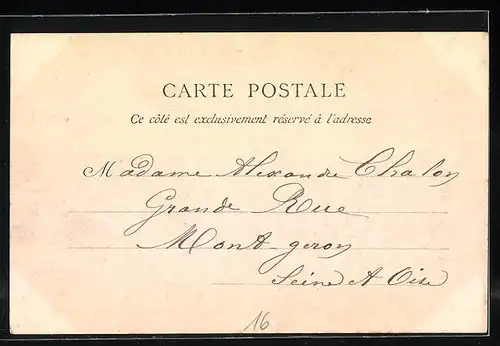 CARTE POSTALE
Ce côté est exclusivement réservé à l'adresse
Madame Alexandre Chalon
Grande Rue
Mont-geron
Seine & Oise
16